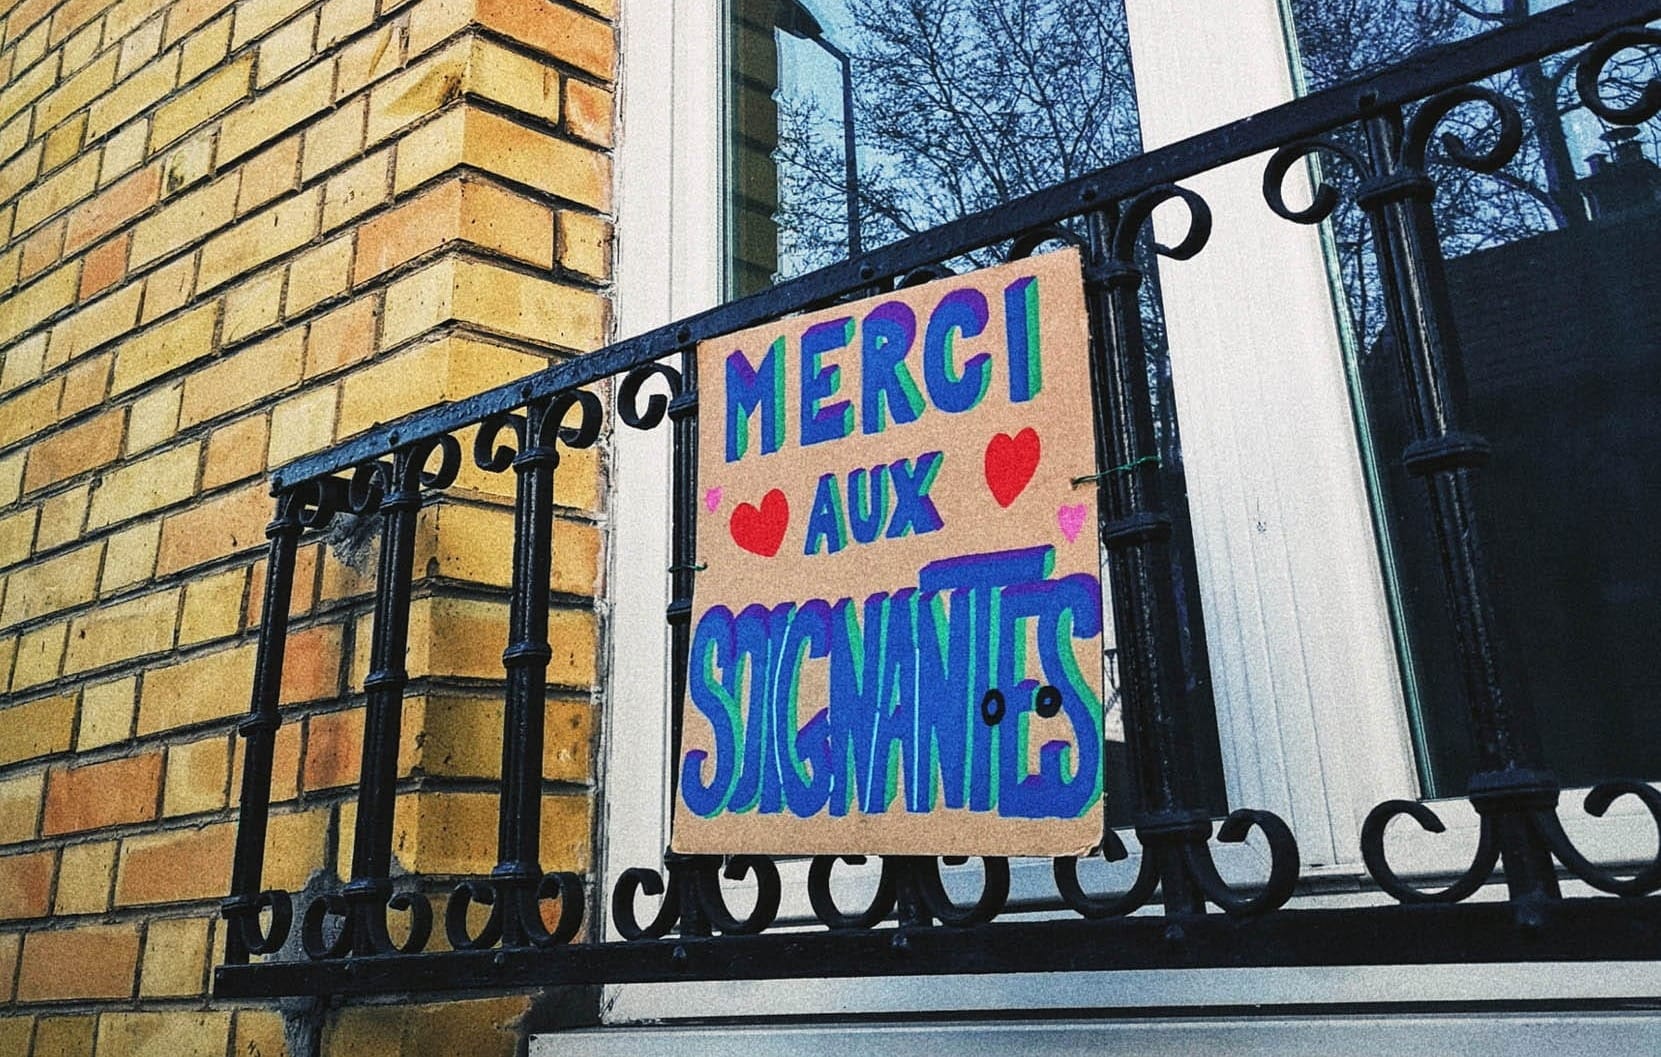 MERCI
AUX
SOIGNANT•E•S